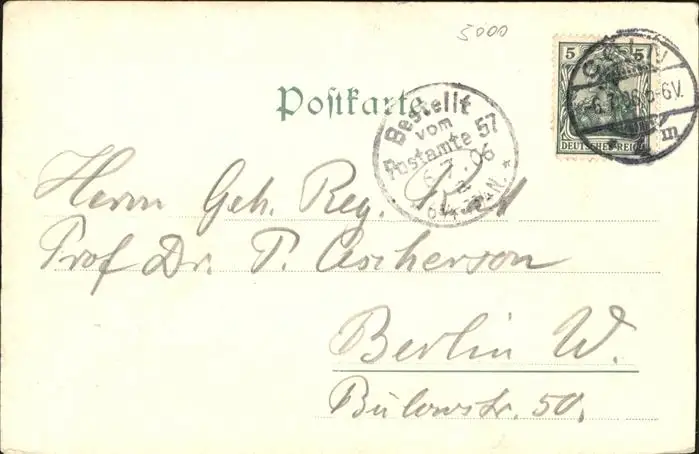 5000
5 5
DEUTSCHES REICH
CÖLN
6.7.06.5-6V.
m
Postkarte
Bestellt
vom
Postamte 57
6.7.06
Herrn Geh. Reg. Rat
Prof Dr. P. Ascherson
Berlin W.
Bülowstr. 50.